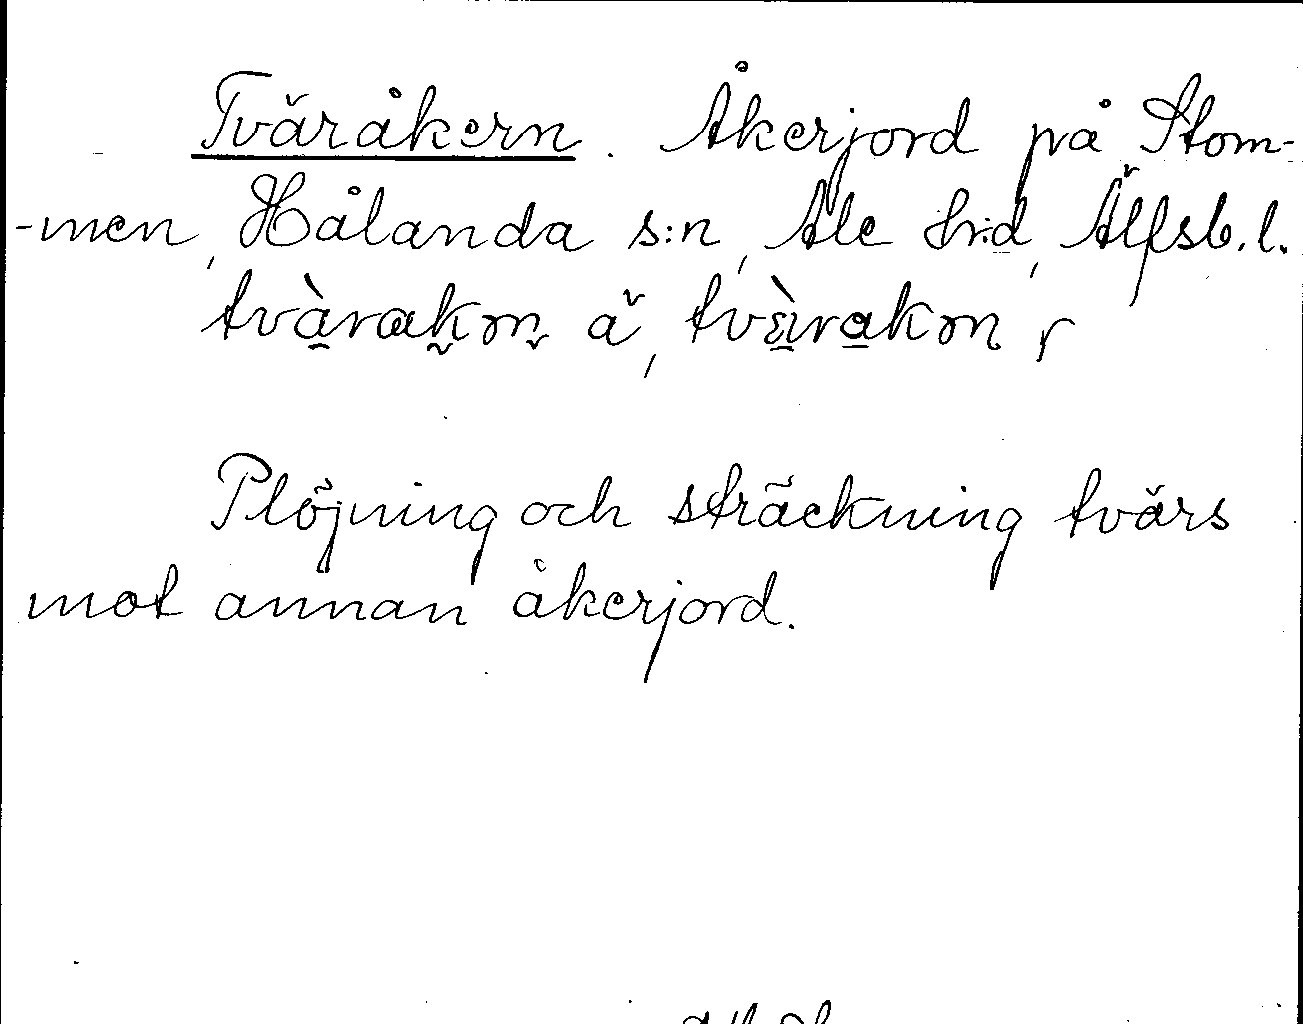 Tväråkern. Åkerjord på Stom-
-men, Hålanda s:n, Ale hd, Älfsb. l.
tvàrakm ä, tvàrakm r
Plöjning och sträckning tvärs
mot annan åkerjord.